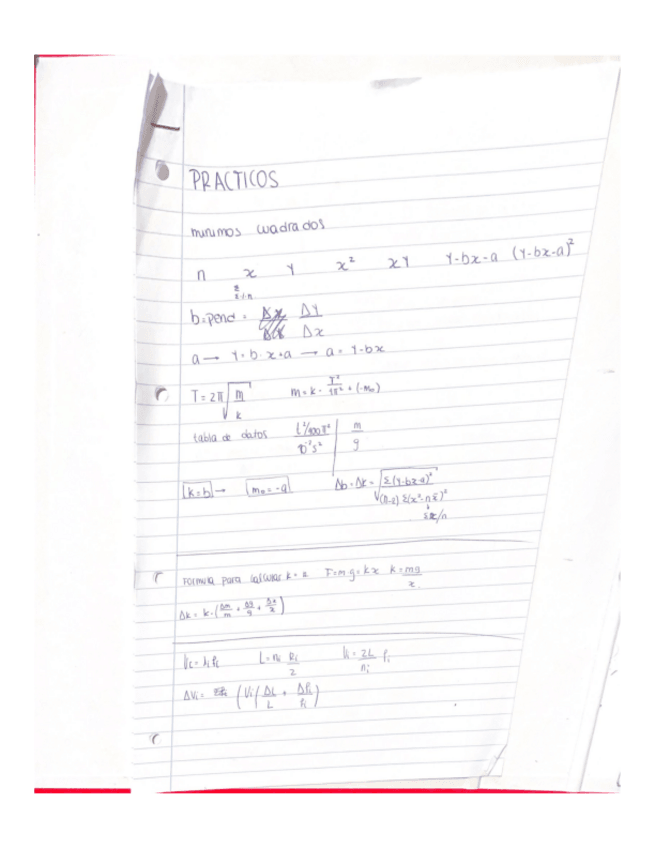 PRACTICOS
minimos cuadrados
n x Y x² xY Y-bx-a (Y-bx-a)²
b=pend = ΔY/Δx
a → Y=b·x+a → a = Y-bx
T = 2π√(m/k) m = k · T²/4π² + (-m₀)
tabla de datos t²/400π² | m
10⁻²s² | g
k=b → m₀=-a Δb=Δk = √(Σ(Y-bx-a)²/(n-2)Σ(x²-nx̄)²)
Σx/n
Formula para calcular k = F=m·g=kx k=mg/x
Δk = k·(Δm/m + Δg/g + Δx/x)
Vi=λifi L=ni λi/2 Vi=2L/ni fi
ΔVi= (Vi(ΔL/L + Δfi/fi)